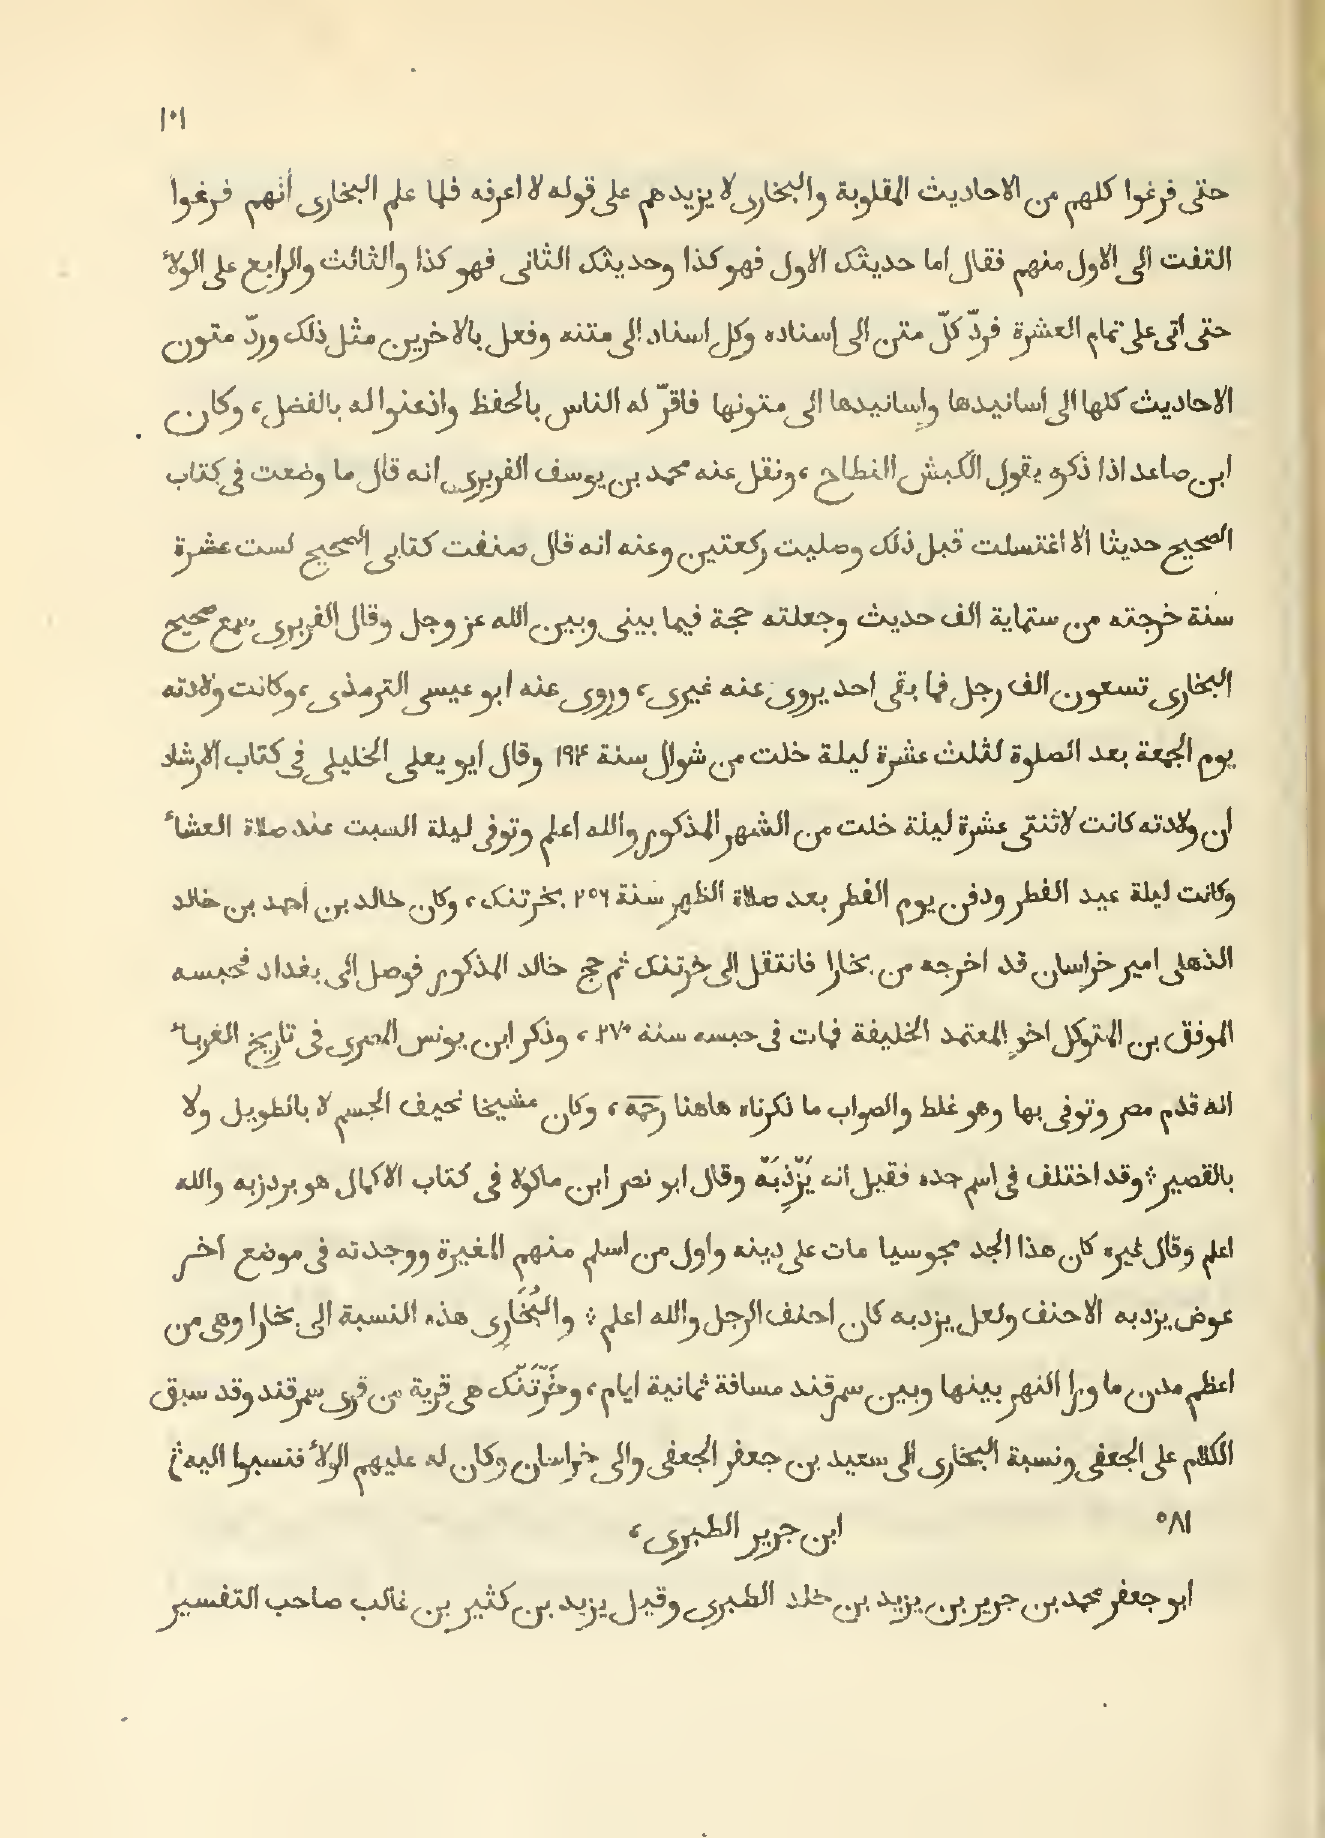 ١٠١
حتى فرغوا كلهم من الاحاديث المقلوبة والبخارى لا يزيدهم على قوله لا اعرفه فلما علم البخارى أنهم فرغوا
التفت الى الاول منهم فقال اما حديثك الاول فهو كذا وحديثك الثانى فهو كذا والثالث والرابع على الولأ
حتى اتى على تمام العشرة فردّ كلّ متن الى اسناده وكل اسناد الى متنه وفعل بالاخرين مثل ذلك وردّ متون
الاحاديث كلها الى اسانيدها واسانيدها الى متونها فاقرّ له الناس بالحفظ واذعنوا له بالفضل، وكان
ابن صاعد اذا ذكره يقول الكبش النطاح، ونقل عنه محمد بن يوسف الفربرى انه قال ما وضعت فى كتاب
الصحيح حديثا الا اغتسلت قبل ذلك وصليت ركعتين وعنه انه قال صنفت كتابى الصحيح لست عشرة
سنة خرجته من ستماية الف حديث وجعلته حجة فيما بينى وبين الله عز وجل وقال الفربرى سمع صحيح
البخارى تسعون الف رجل فما بقى احد يروى عنه غيرى، وروى عنه ابو عيسى الترمذى، وكانت ولادته
يوم الجمعة بعد الصلوة لثلث عشرة ليلة خلت من شوال سنة ١٩۴ وقال ابو يعلى الخليلى فى كتاب الارشاد
ان ولادته كانت لاثنتى عشرة ليلة خلت من الشهر المذكور والله اعلم وتوفى ليلة السبت عند صلاة العشأ
وكانت ليلة عيد الفطر ودفن يوم الفطر بعد صلاة الظهر سنة ٢٥٦ بخرتنك، وكان خالد بن احمد بن خالد
الذهلى امير خراسان قد اخرجه من بخارا فانتقل الى خرتنك ثم حج خالد المذكور فوصل الى بغداد فحبسه
الموفق بن المتوكل اخو المعتمد الخليفة فمات فى حبسه سنة ٢٧٠، وذكر ابن يونس المصرى فى تاريخ الغربأ
انه قدم مصر وتوفى بها وهو غلط والصواب ما ذكرناه هاهنا رحمه، وكان مشيخا نحيف الجسم لا بالطويل ولا
بالقصير ؛ وقد اختلف فى اسم جده فقيل انه يَزْذِبَه وقال ابو نصر ابن ماكولا فى كتاب الاكمال هو بردزبه والله
اعلم وقال غيره كان هذا الجد مجوسيا مات على دينه واول من اسلم منهم المغيرة ووجدته فى موضع اخر
عوض يزدبه الاحنف ولعل يزدبه كان احنف الرجل والله اعلم ؛ والبُخَارِى هذه النسبة الى بخارا وهى من
اعظم مدن ما ورا النهر بينها وبين سمرقند مسافة ثمانية ايام، وخَرْتَنْك هى قرية من قرى سمرقند وقد سبق
الكلام على الجعفى ونسبة البخارى الى سعيد بن جعفر الجعفى والى خراسان وكان له عليهم الولأ فنسبوا اليه ؛
٥٨١ ابن جرير الطبرى،
ابو جعفر محمد بن جرير بن يزيد بن خلد الطبرى وقيل يزيد بن كثير بن غالب صاحب التفسير